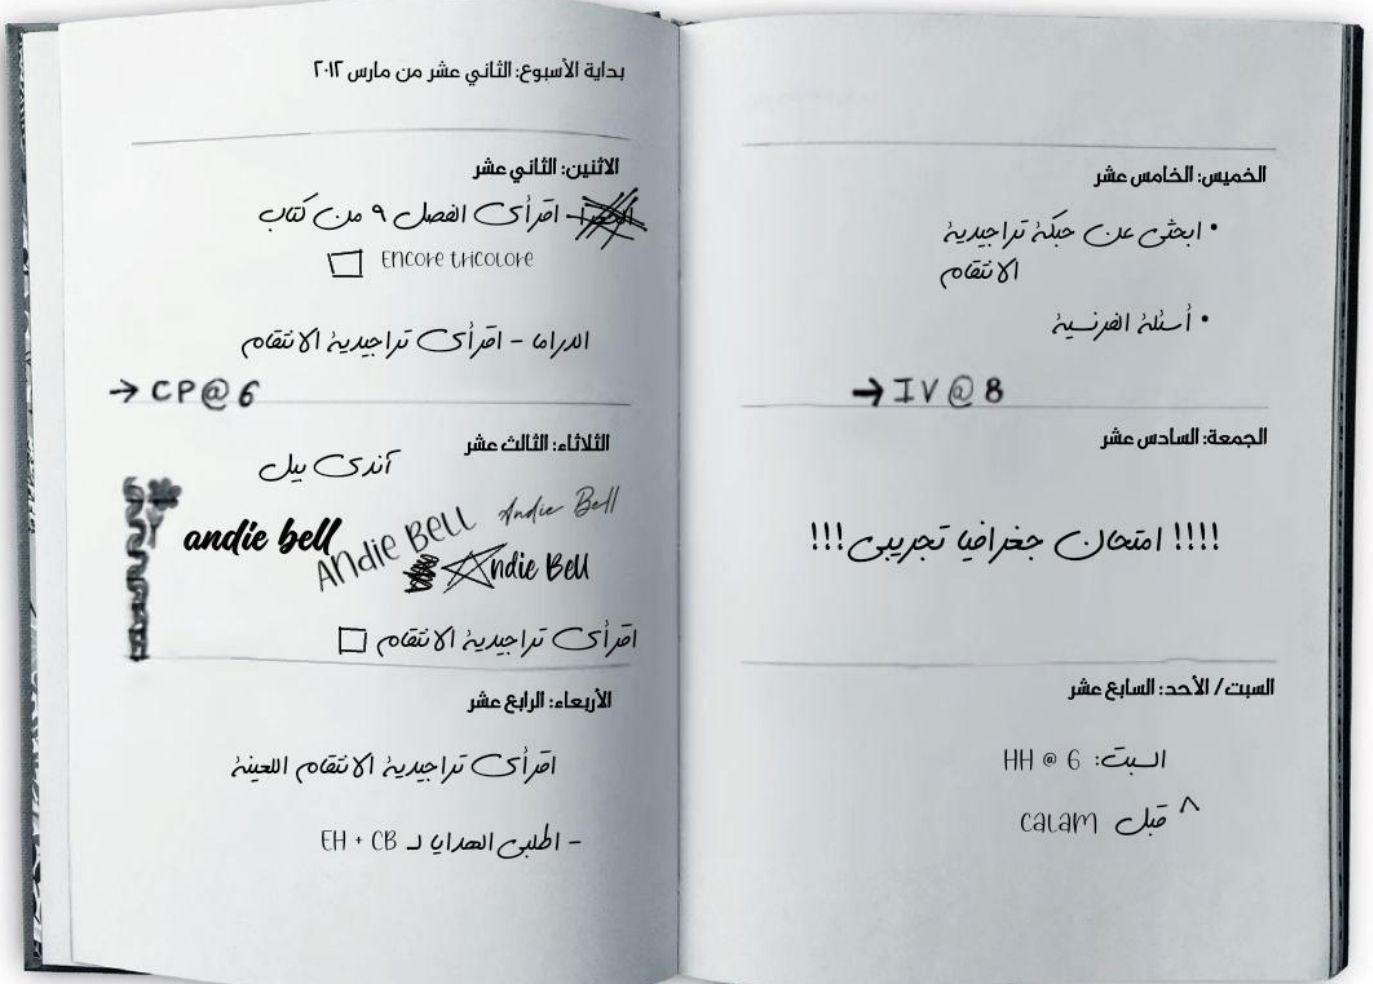 بداية الأسبوع: الثاني عشر من مارس ٢٠١٢
الاثنين: الثاني عشر
- اقرأي الفصل ٩ من كتاب
Encore tricolore
الدراما - اقرأي تراجيدية الانتقام
→ CP@6
الثلاثاء: الثالث عشر
آندي بيل
Andie Bell
andie bell
Andie Bell
Andie Bell
اقرأي تراجيدية الانتقام
الأربعاء: الرابع عشر
اقرأي تراجيدية الانتقام اللعينة
- اطلبي الهدايا لـ EH + CB
الخميس: الخامس عشر
• ابحثي عن حبكة تراجيدية
الانتقام
• أسئلة الفرنسية
→ IV @ 8
الجمعة: السادس عشر
!!!! امتحان جغرافيا تجريبي !!!
السبت/ الأحد: السابع عشر
السبت: HH @ 6
^ قبل calam